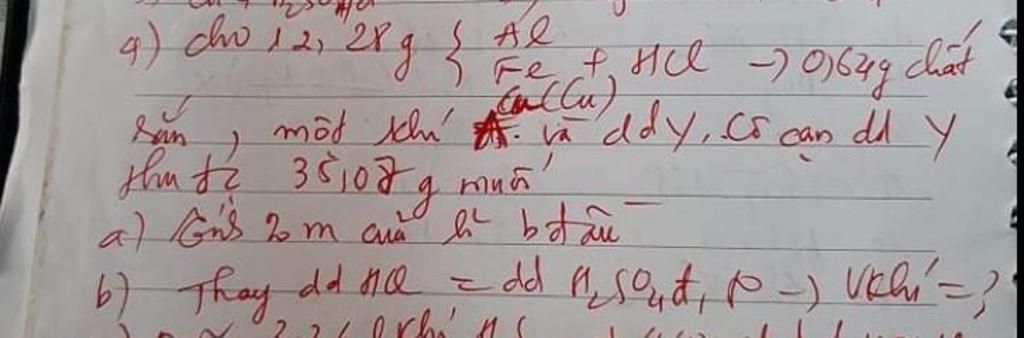 4) cho 12,28g { Al
Fe + HCl → 0,64g chất
Cu (Cu)
rắn, một khí và ddY. Cô cạn dd Y
thu đc 35,07g muối
a) Tính % m của h² bđầu
b) Thay dd HCl = dd H₂SO₄đ, to → Vkhí = ?